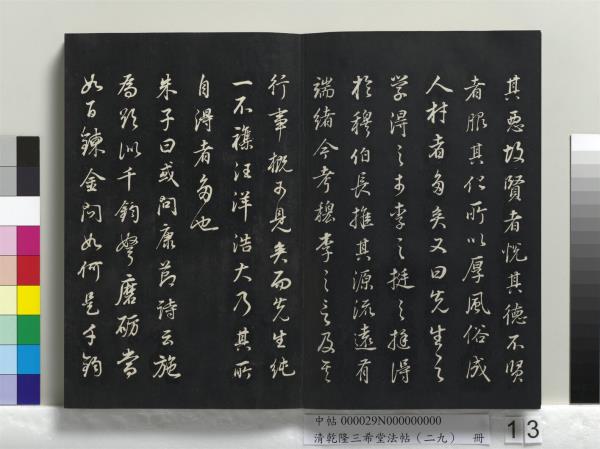 其惡故賢者悅其德不賢
者服其化所以厚風俗成
人材者多矣又曰先生之
學得之于李之挺之挺得
於穆伯長推其源流遠有
端緒今考穆李之言及其
行事概可見矣而先生純
一不雜汪洋浩大乃其所
自得者多也
朱子曰或問康節詩云施
為欲似千鈞弩磨礪當
如百鍊金問如何是千鈞
中帖 000029N000000000
清乾隆三希堂法帖（二九） 冊
13